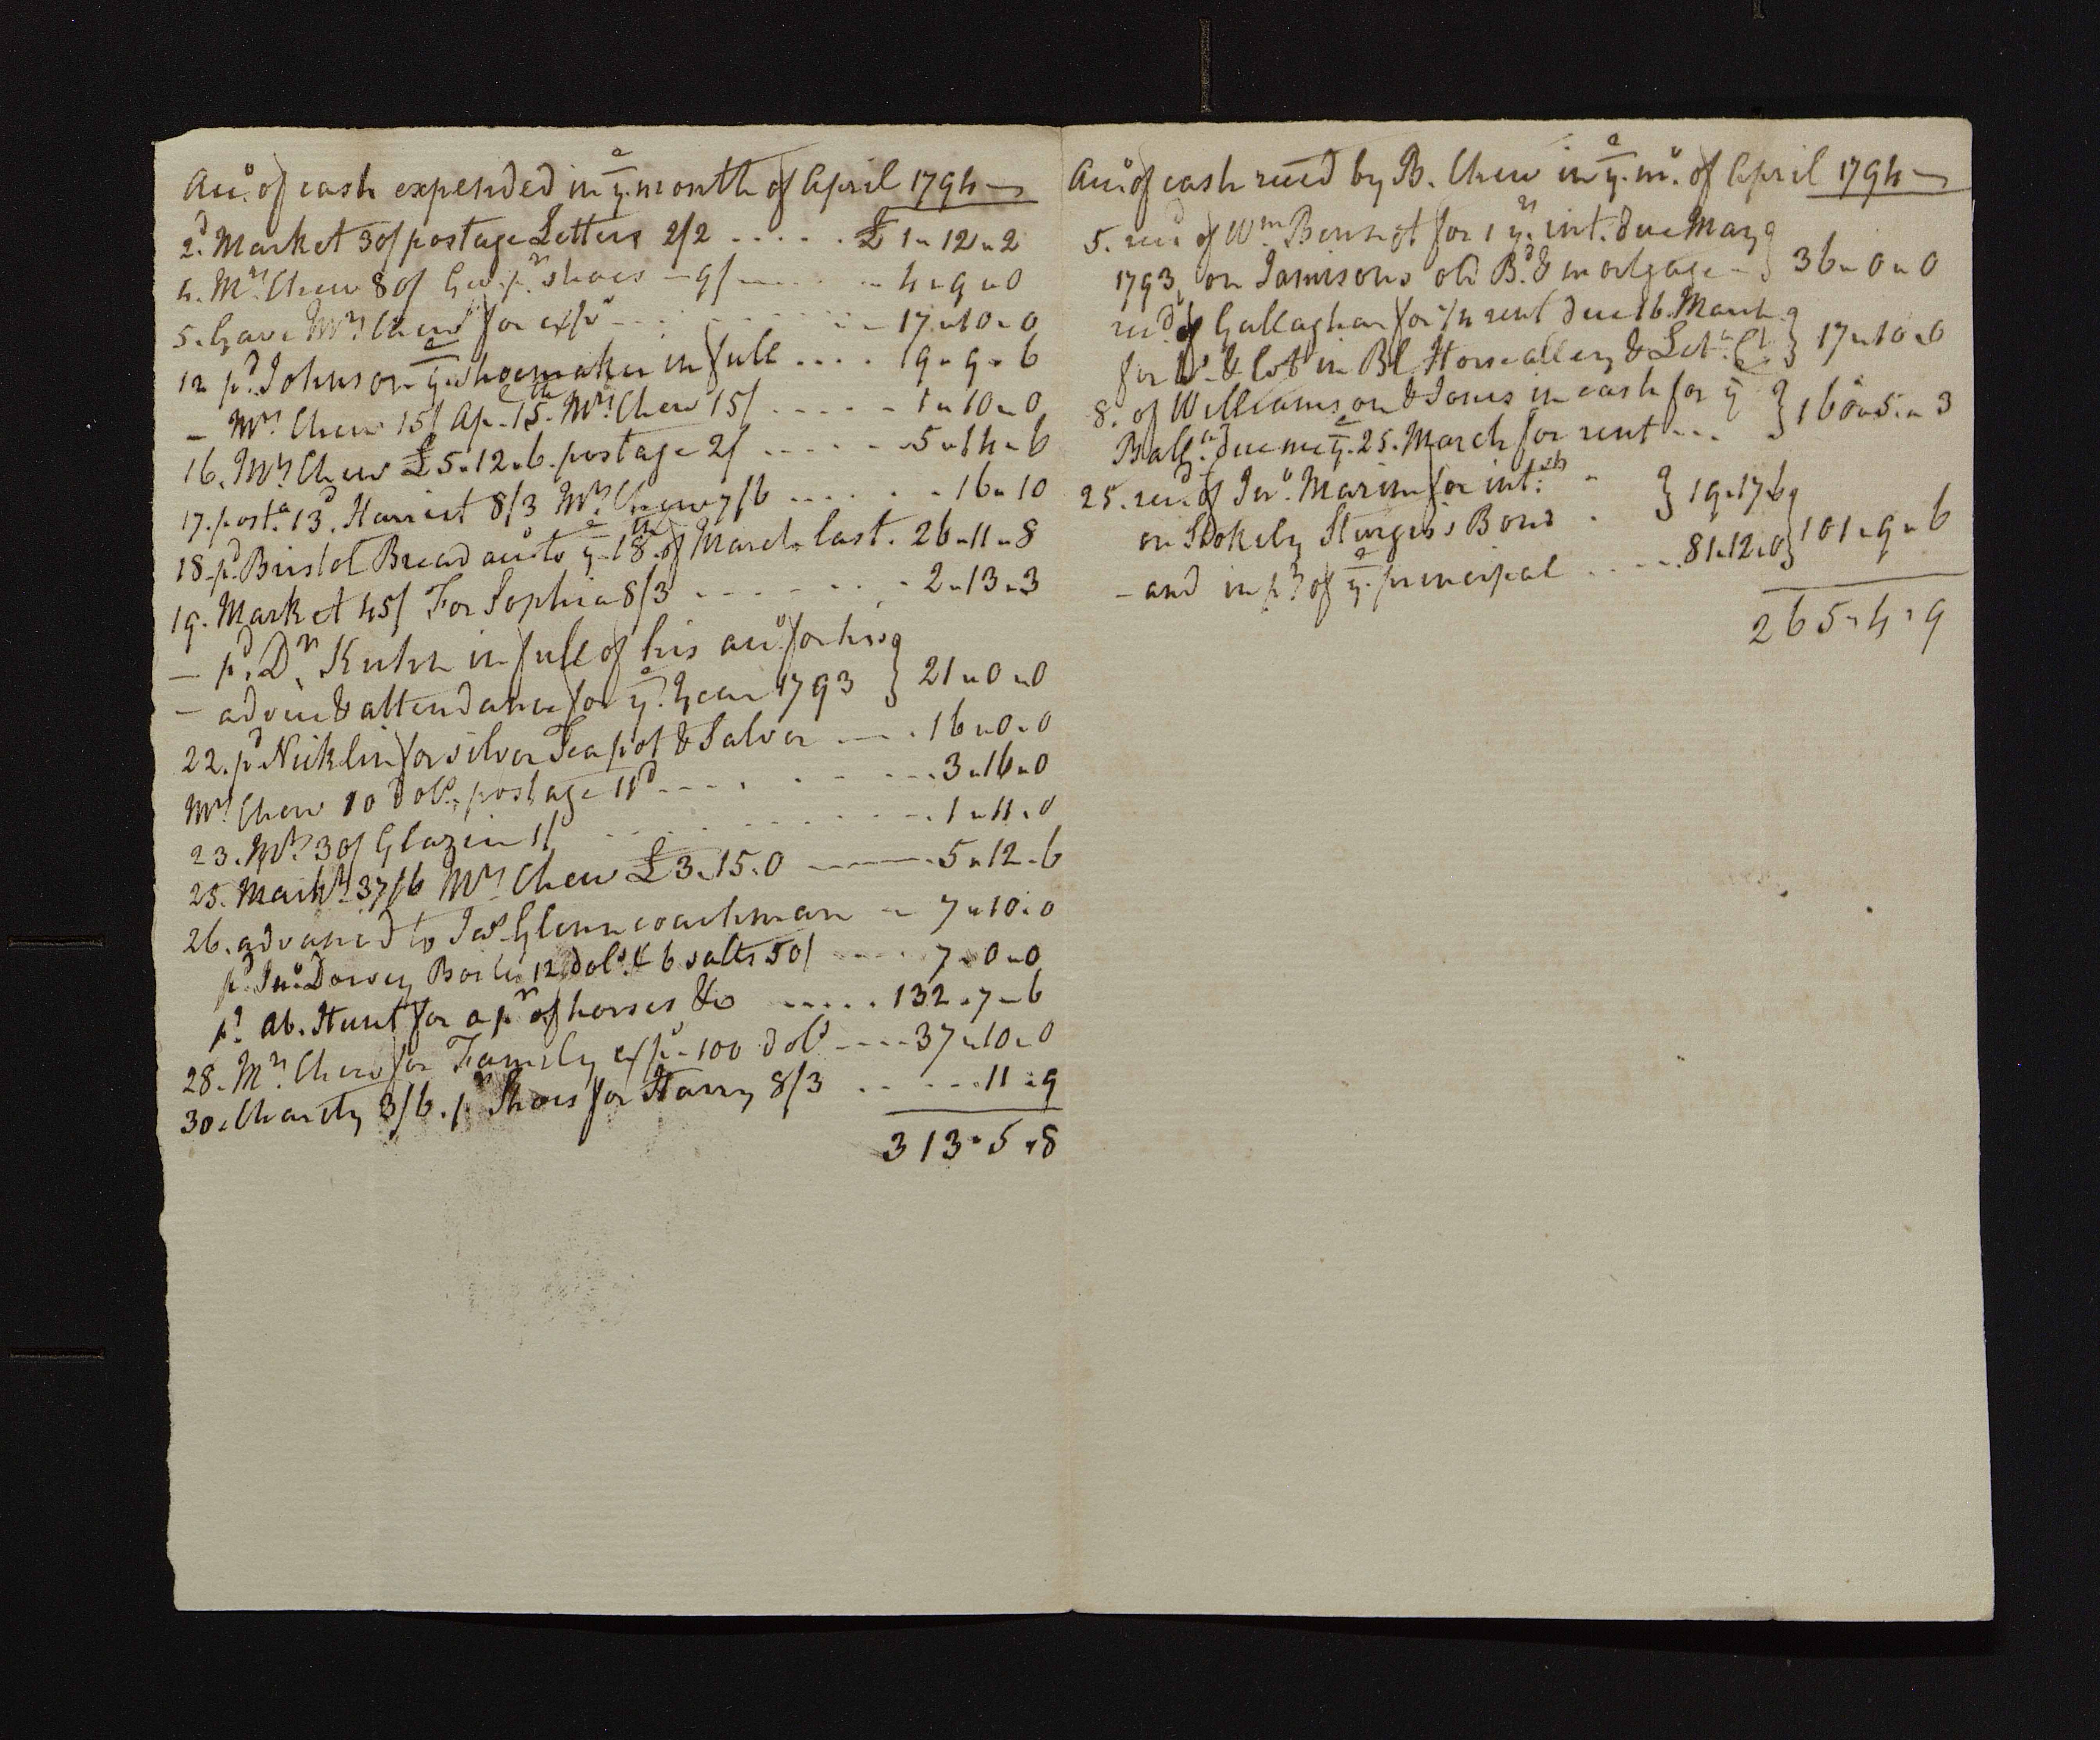 Acco. of cash expended in ye. month of April 1794
2d. Market 30/ postage Letters 2/2 ..... £ 1 " 12 " 2
4. Mrs. Chew 80/ Geo. pr. shoes - 9/ - ..... 4 " 9 " 0
5. Gave Mrs. Chew for exps ........ 17 " 10 " 0
12 pd. Johnson ye. shoemaker in full .... 9 " 9 " 6
- Mrs. Chew 15/ Ap. 15th. Mrs. Chew 15/ ..... 1 " 10 " 0
16. Mrs. Chew £5 " 12 " 6. postage 2/ ..... 5 " 14 " 6
17. posta. 13d. Harriet 8/3 Mrs. Chew 7/6 ...... 16 " 10
18. pd. Bristol Bread acco to ye. 18th. of March last. 26 " 11 " 8
19. Market 45/ For Sophia 8/3 ....... 2 " 13 " 3
- pd. Dr. Kuhn in full of his acco. for his
- advice & attendance for ye. year 1793 } 21 " 0 " 0
22. pd Nicklin for silver Teapot & Salver ... 16 " 0 " 0
Mrs. Chew 10 dols. postage 11d .... 3 " 16 " 0
23. Mrs. 30/ Glazier 1/ ........ 1 " 11 " 0
25. Markt. 37/6 Mrs. Chew £3 " 15 " 0 ---- 5 " 12 " 6
26. advanced to Jas. Glenn coachman - 7 " 10 " 0
pd. Jno. Dorsey 12 dols. & 6 salts 50/ .... 7 " 0 " 0
pd. Ab. Hunt for a pr. of horses &c ..... 132 " 7 " 6
28. Mrs. Chew for Family exps - 100 dols ---- 37 " 10 " 0
30. Charity 3/6. pr. Shoes for Harry 8/3 ...... 11 " 9
313 " 5 " 8
Acco. of cash recd by B. Chew in ye. mo. of April 1794
5. recd of Wm. for 1 yr. int. due May
1793, on Jamisons old Bd. & mortgage - } 36 " 0 " 0
recd. of Gallagher for 1/4 rent due 16. March
for & lot in Bl Horse alley & } 17 " 10 " 0
8. of Williamson & Jones in cash for ye
Balla. due me ye. 25. March for rent ... } 160 " 5 " 3
25. recd. of Jno. for int.
on Stokely Sturgis's Bond . } 19 " 17 " 6
- and in pt. of ye. principal ..... 81 " 12 " 0 } 101 " 9 " 6
265 " 4 " 9